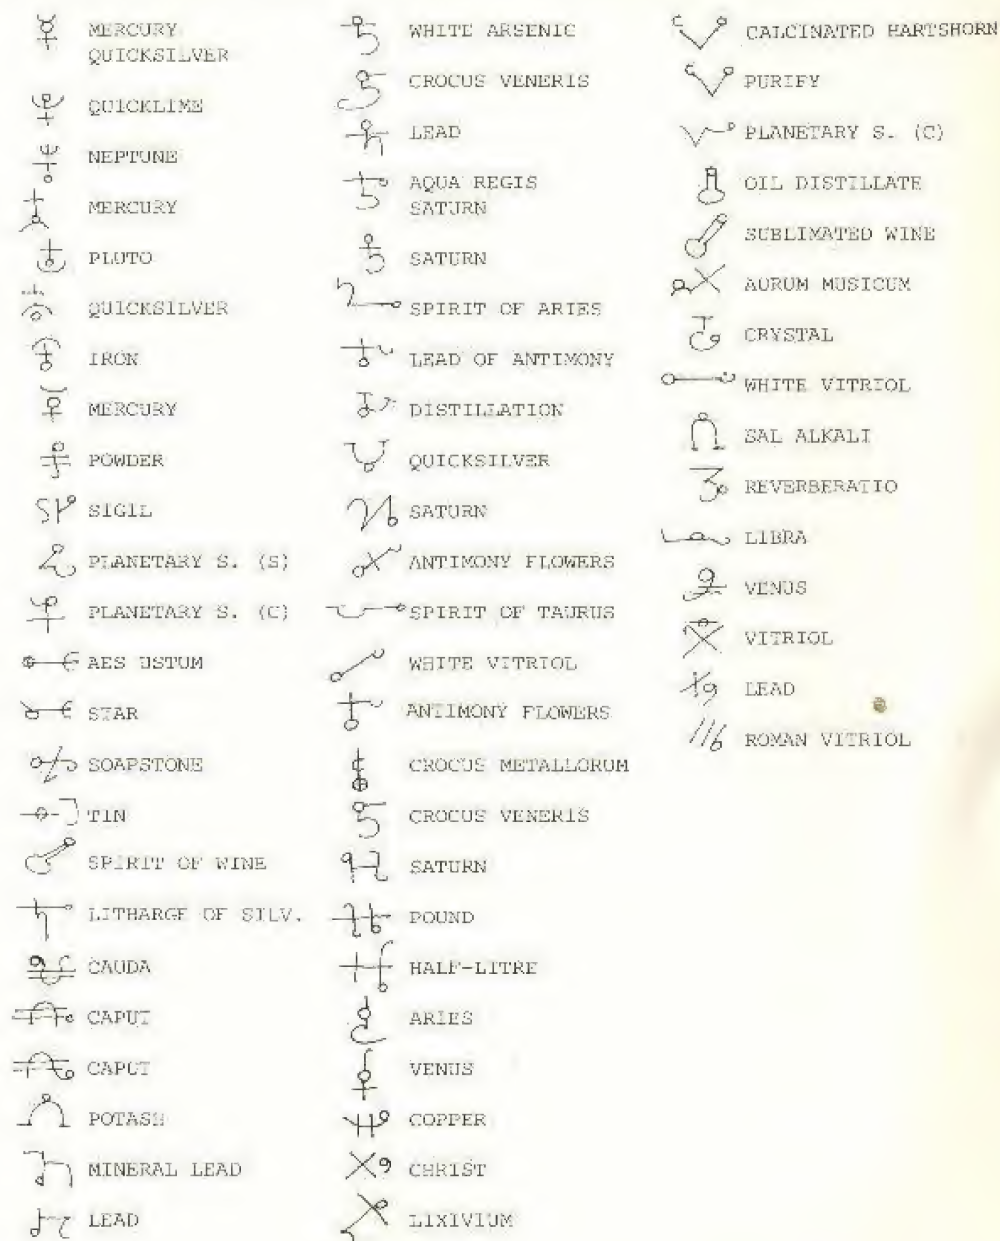 MERCURY
QUICKSILVER
QUICKLIME
NEPTUNE
MERCURY
PLUTO
QUICKSILVER
IRON
MERCURY
POWDER
SIGIL
PLANETARY S. (S)
PLANETARY S. (C)
AES USTUM
STAR
SOAPSTONE
TIN
SPIRIT OF WINE
LITHARGE OF SILV.
CAUDA
CAPUT
CAPUT
POTASH
MINERAL LEAD
LEAD
WHITE ARSENIC
CROCUS VENERIS
LEAD
AQUA REGIS
SATURN
SATURN
SPIRIT OF ARIES
LEAD OF ANTIMONY
DISTILLATION
QUICKSILVER
SATURN
ANTIMONY FLOWERS
SPIRIT OF TAURUS
WHITE VITRIOL
ANTIMONY FLOWERS
CROCUS METALLORUM
CROCUS VENERIS
SATURN
POUND
HALF-LITRE
ARIES
VENUS
COPPER
CHRIST
LIXIVIUM
CALCINATED HARTSHORN
PURIFY
PLANETARY S. (C)
OIL DISTILLATE
SUBLIMATED WINE
AORUM MUSICUM
CRYSTAL
WHITE VITRIOL
SAL ALKALI
REVERBERATIO
LIBRA
VENUS
VITRIOL
LEAD
ROMAN VITRIOL